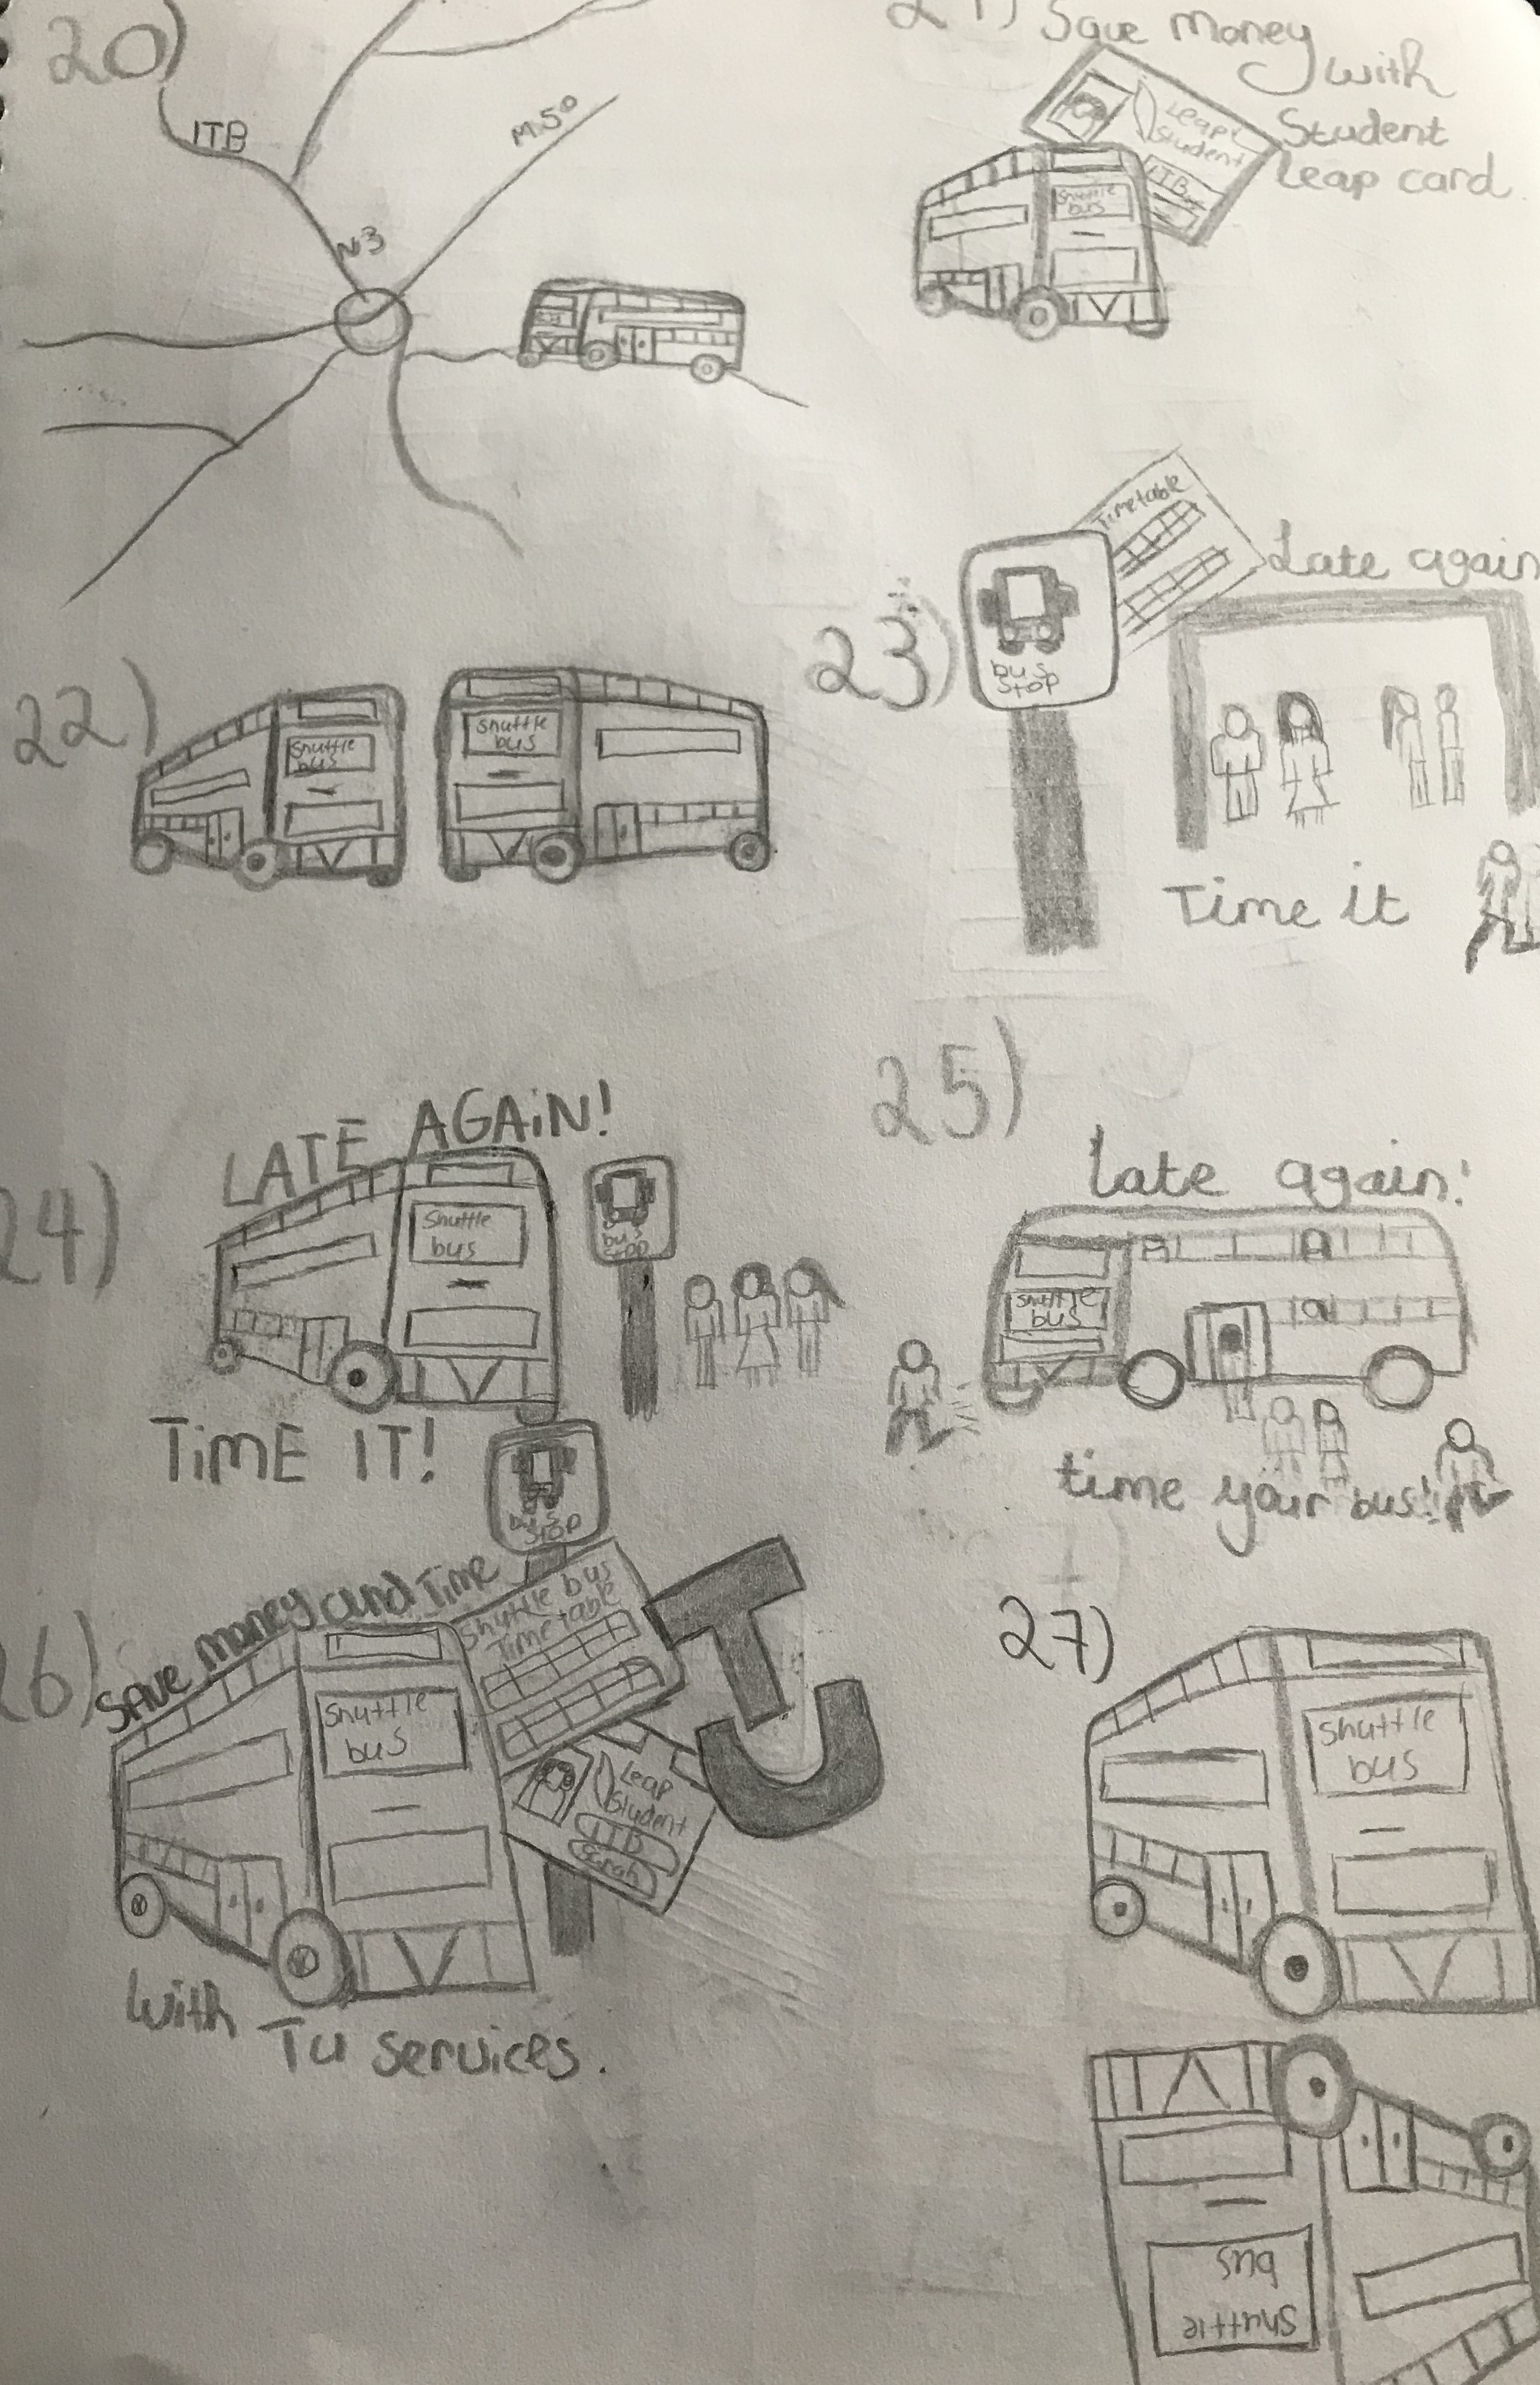 20)
ITB
N3
M50
21) Save Money
with
Student
Leap card
Leap
Student
ITB
Shuttle
bus
22)
Shuttle
bus
Shuttle
bus
23)
Timetable
bus
Stop
Late again
Time it
24)
LATE AGAiN!
Shuttle
bus
bus
stop
TiME IT!
25)
late again!
Shuttle
bus
time your bus!
26)
bus
stop
Save money and Time
Shuttle bus
Timetable
Shuttle
bus
TU
Leap
Student
ITB
Sarah
with
TU services.
27)
Shuttle
bus
Shuttle
bus